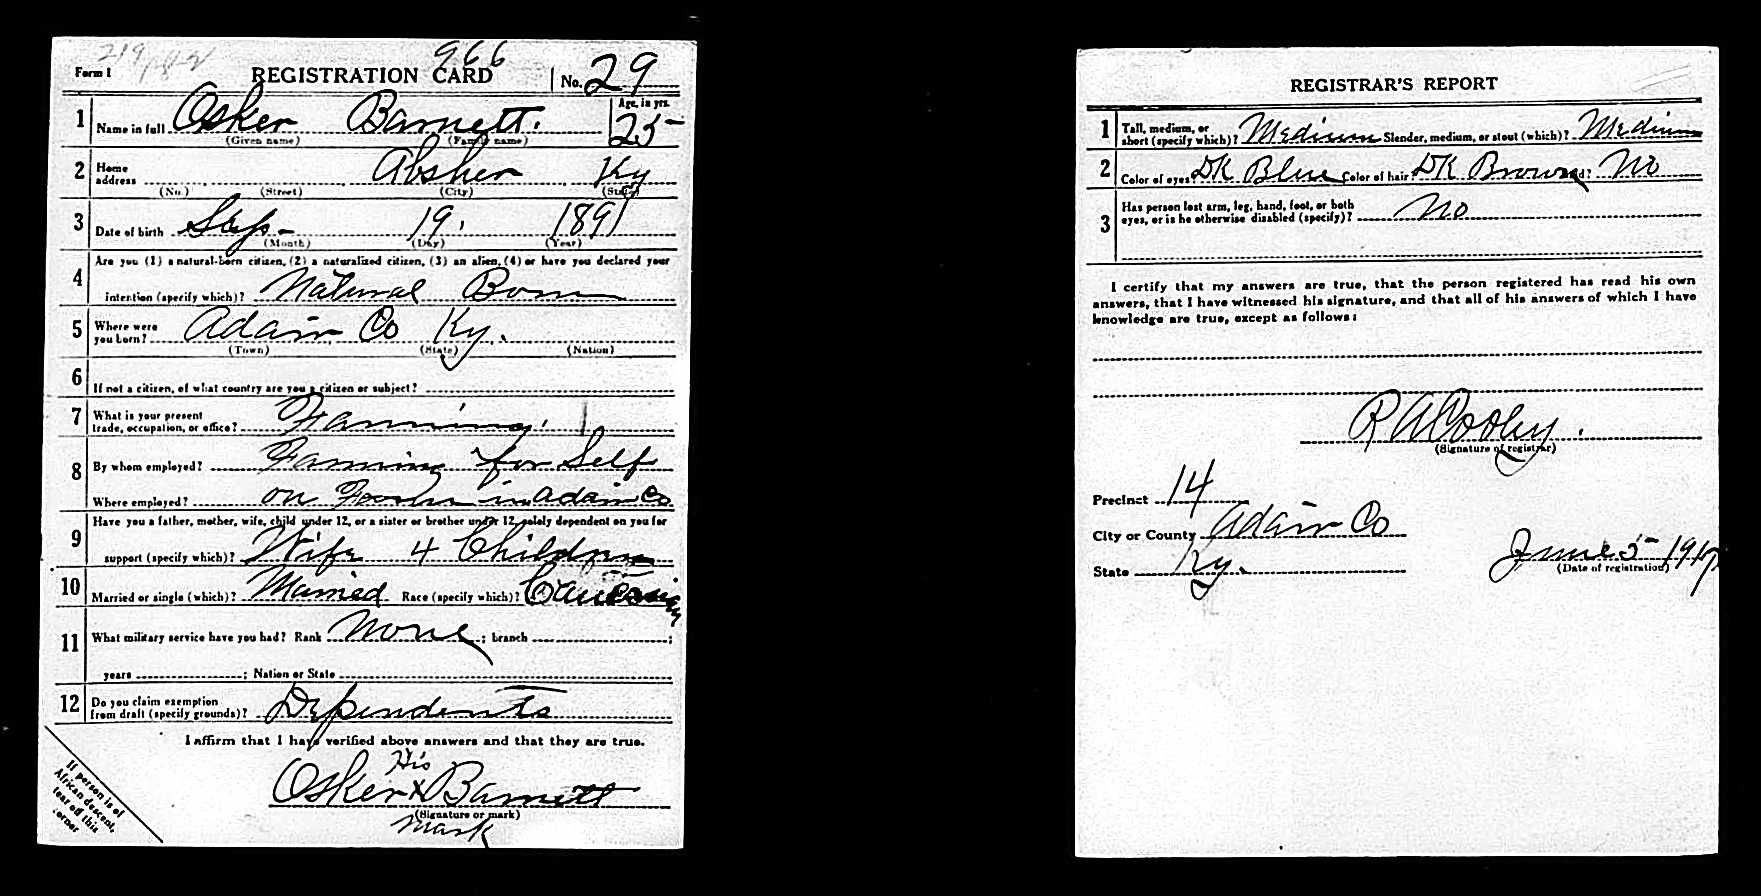 219
966
Form 1 REGISTRATION CARD No. 29
1 Name in full Osker Barnett. Age, in yrs. 25
(Given name) (Family name)
2 Home address Absher Ky
(No.) (Street) (City) (State)
3 Date of birth Sep - 19, 1891
(Month) (Day) (Year)
4 Are you (1) a natural-born citizen, (2) a naturalized citizen, (3) an alien, (4) or have you declared your
intention (specify which)? Natural Born
5 Where were you born? Adair Co Ky.
(Town) (State) (Nation)
6 If not a citizen, of what country are you a citizen or subject?
7 What is your present
trade, occupation, or office? Farming.
8 By whom employed? Farming for Self
Where employed? on Farm in Adair Co
9 Have you a father, mother, wife, child under 12, or a sister or brother under 12, solely dependent on you for
support (specify which)? Wife 4 Children
10 Married or single (which)? Married Race (specify which)? Caucasian
11 What military service have you had? Rank None ; branch ;
years ; Nation or State
12 Do you claim exemption
from draft (specify grounds)? Dependents
I affirm that I have verified above answers and that they are true.
His
Osker X Barnett
(Signature or mark)
mark
If person is of
African descent,
tear off this
corner
REGISTRAR'S REPORT
1 Tall, medium, or
short (specify which)? Medium Slender, medium, or stout (which)? Medium
2 Color of eyes? DK Blue Color of hair? DK Brown No
3 Has person lost arm, leg, hand, foot, or both
eyes, or is he otherwise disabled (specify)? No
I certify that my answers are true, that the person registered has read his own
answers, that I have witnessed his signature, and that all of his answers of which I have
knowledge are true, except as follows:
R A Cooley.
(Signature of registrar)
Precinct 14
City or County Adair Co
State Ky.
June 5 1917
(Date of registration)